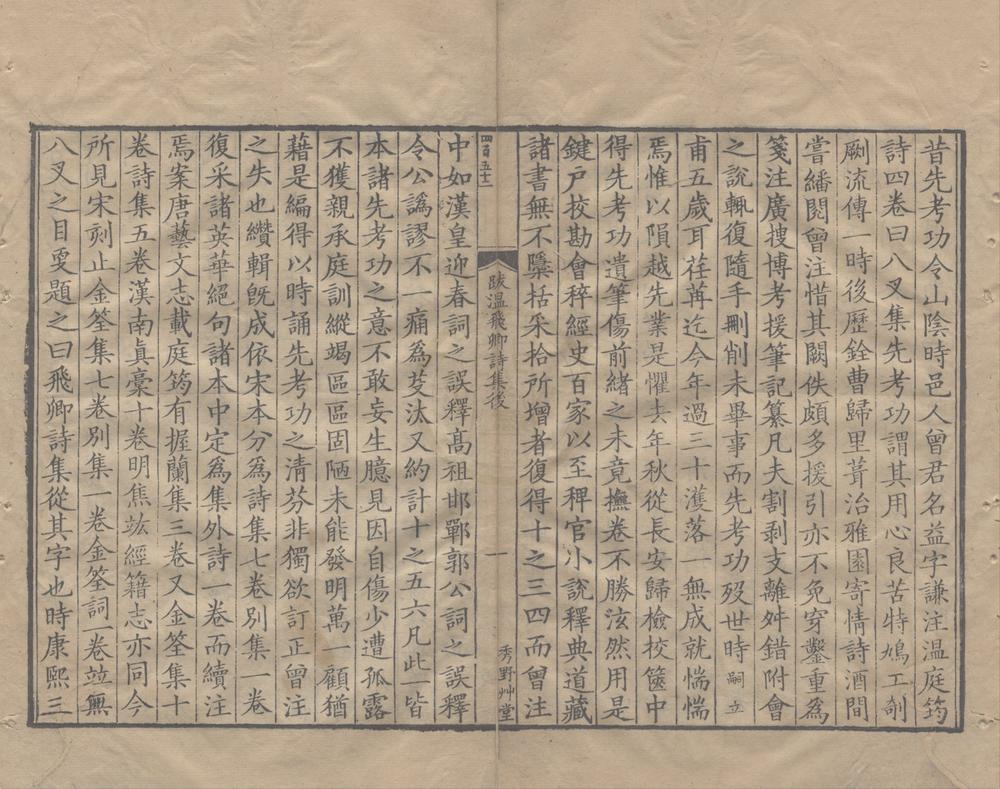 昔先考功令山陰時邑人曾君名益字謙注温庭筠
詩四卷曰八叉集先考功謂其用心良苦特鳩工剞
劂流傳一時後歷銓曹歸里葺治雅園寄情詩酒間
嘗繙閱曾注惜其闕佚頗多援引亦不免穿鑿重為
箋注廣搜博考援筆記纂凡夫割剥支離舛錯附會
之說輒復隨手刪削未畢事而先考功歿世時嗣立
甫五歲耳荏苒迄今年過三十濩落一無成就惴惴
焉惟以隕越先業是懼去年秋從長安歸檢校篋中
得先考功遺筆傷前緒之未竟撫卷不勝泫然用是
鍵戸校勘會稡經史百家以至稗官小說釋典道藏
諸書無不檃栝采拾所增者復得十之三四而曾注
四百五十
跋温飛卿詩集後
一
秀野艸堂
中如漢皇迎春詞之誤釋高祖邯鄲郭公詞之誤釋
令公譌謬不一痛為芟汰又約計十之五六凡此一皆
本諸先考功之意不敢妄生臆見因自傷少遭孤露
不獲親承庭訓縱竭區區固陋未能發明萬一顧猶
藉是編得以時誦先考功之清芬非獨欲訂正曾注
之失也纘輯旣成依宋本分為詩集七卷別集一卷
復采諸英華絕句諸本中定為集外詩一卷而續注
焉案唐藝文志載庭筠有握蘭集三卷又金筌集十
卷詩集五卷漢南眞稾十卷明焦竑經籍志亦同今
所見宋刻止金筌集七卷別集一卷金筌詞一卷竝無
八叉之目爰題之曰飛卿詩集從其字也時康熙三